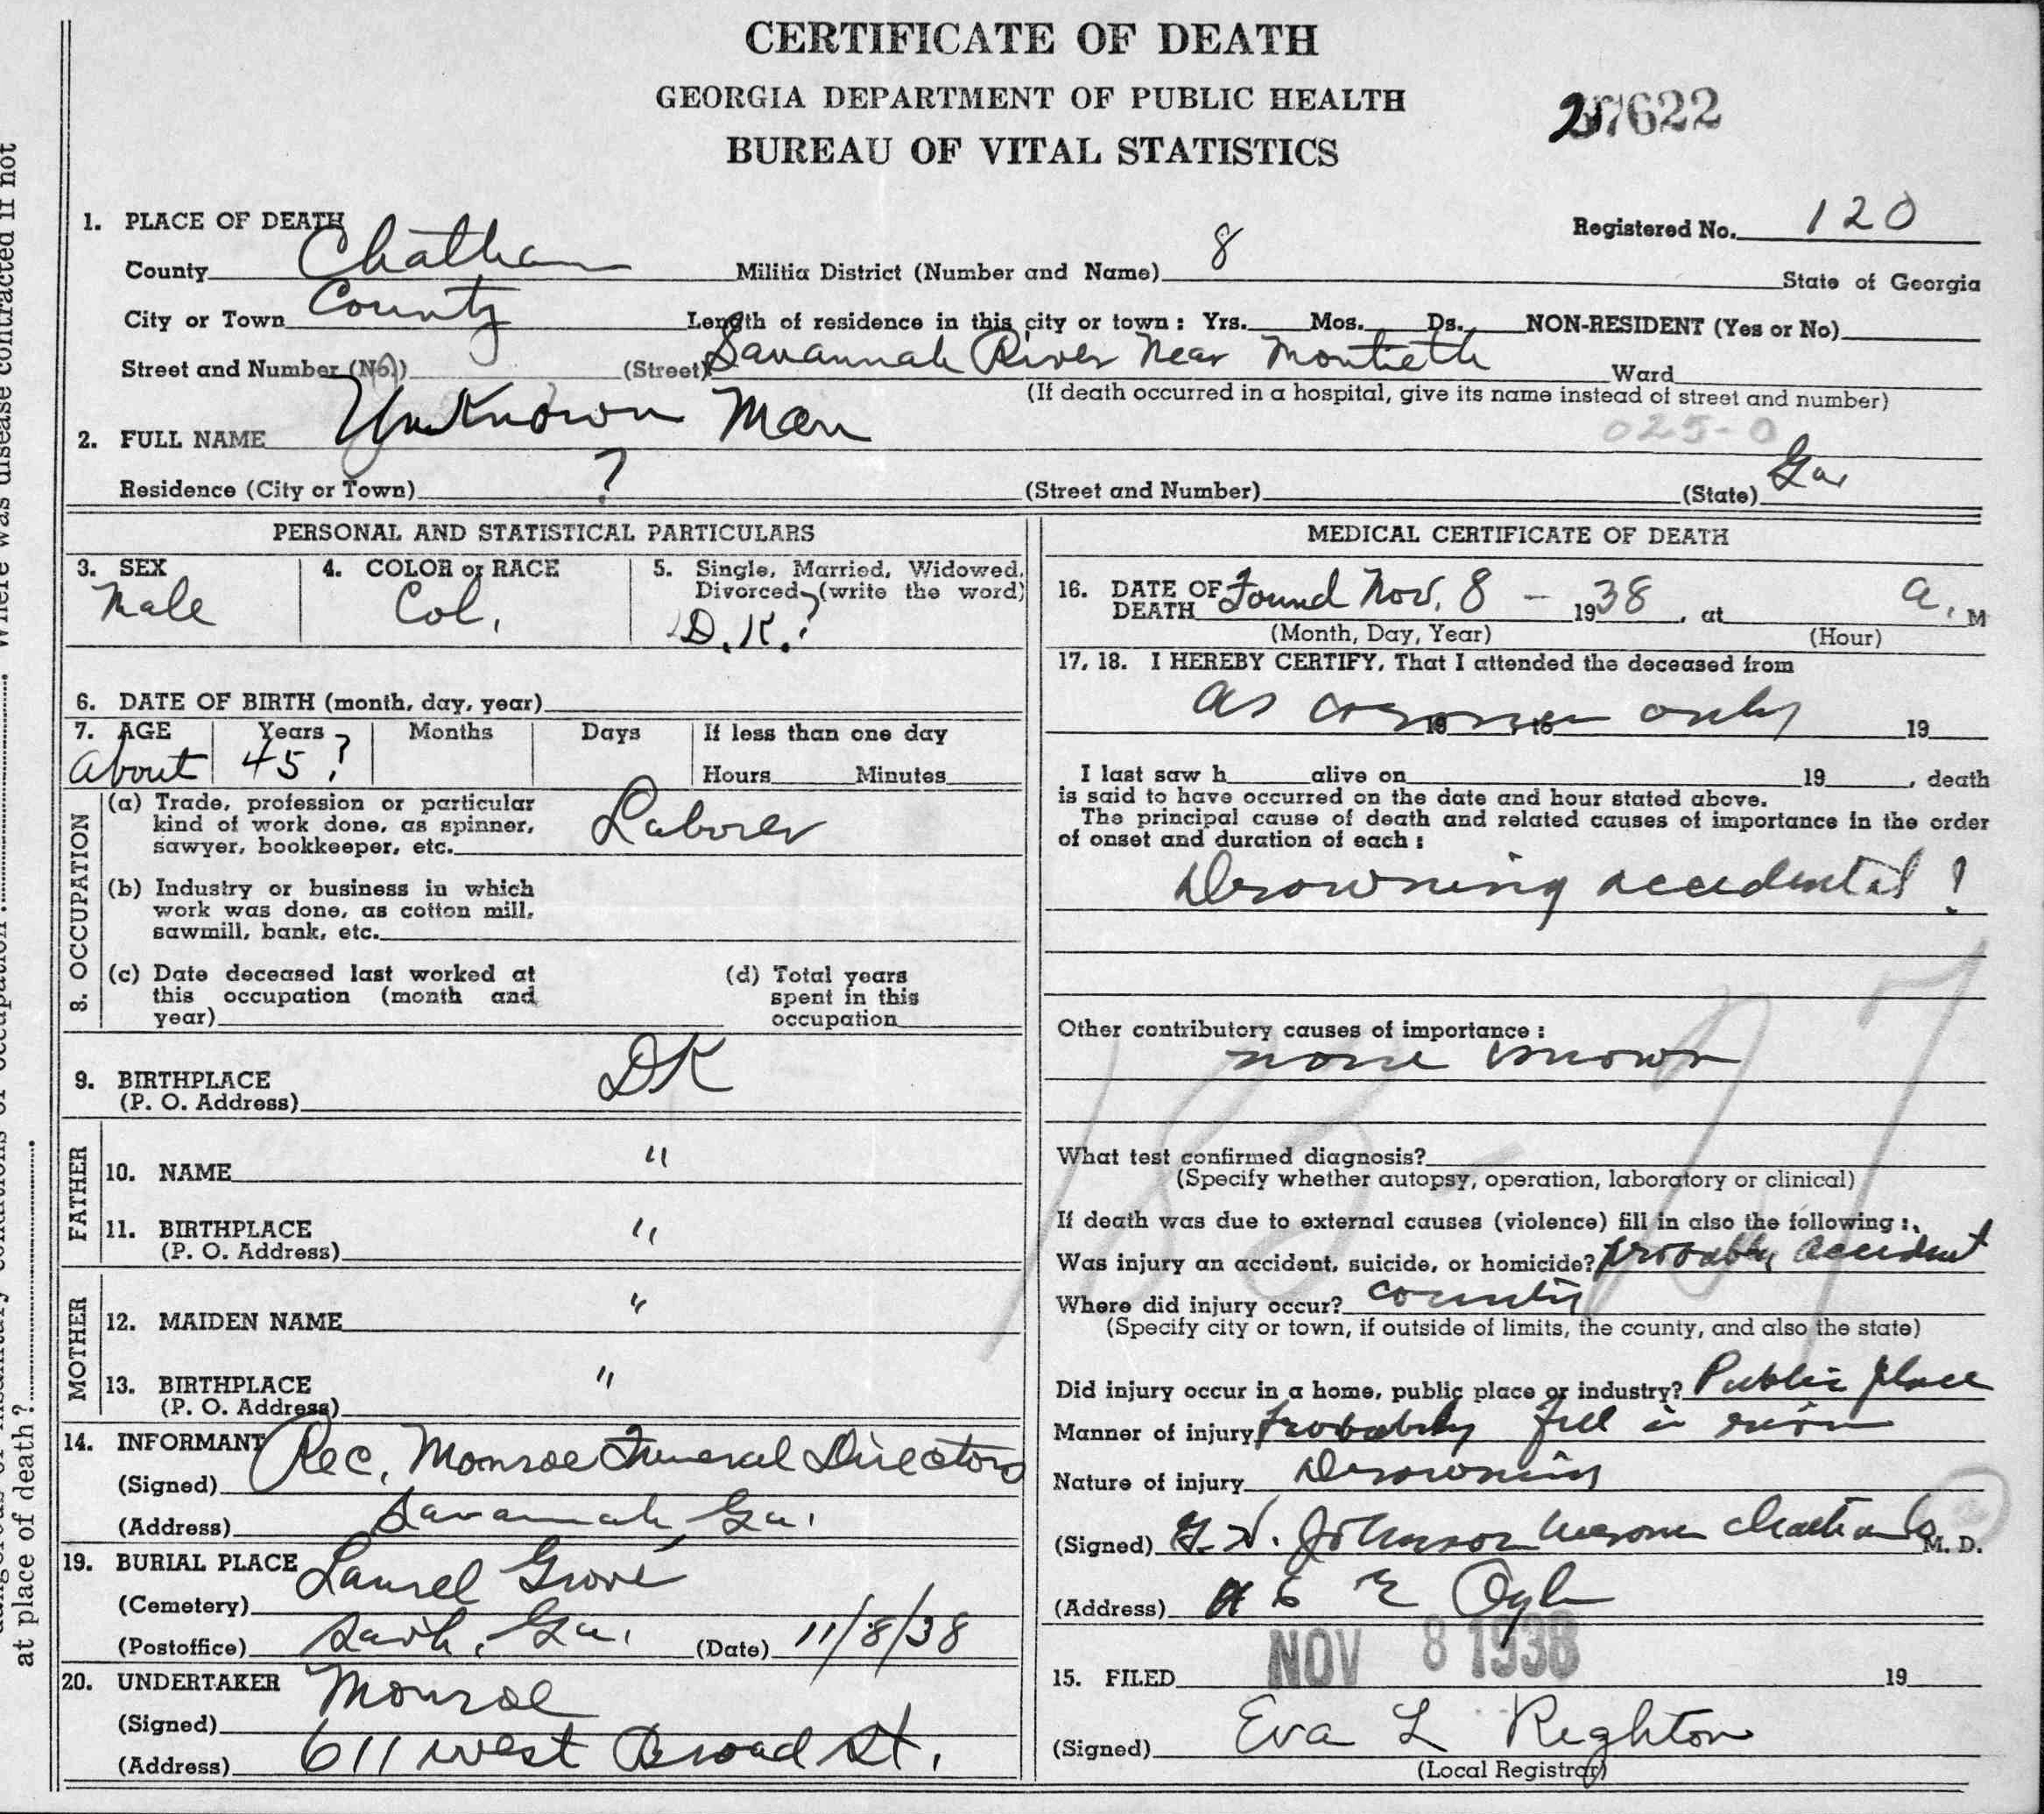 CERTIFICATE OF DEATH
GEORGIA DEPARTMENT OF PUBLIC HEALTH
BUREAU OF VITAL STATISTICS
7622
1. PLACE OF DEATH
Registered No. 120
County Chatham Militia District (Number and Name) 8 State of Georgia
City or Town County Length of residence in this city or town: Yrs. Mos. Ds. NON-RESIDENT (Yes or No)
Street and Number (No.) (Street) Savannah River Near Montieth Ward
(If death occurred in a hospital, give its name instead of street and number)
025-0
2. FULL NAME UnKnown Man
Residence (City or Town) ? (Street and Number) (State) Ga.
PERSONAL AND STATISTICAL PARTICULARS
3. SEX Male
4. COLOR or RACE Col.
5. Single, Married, Widowed, Divorced (write the word) D.K.?
6. DATE OF BIRTH (month, day, year)
7. AGE Years Months Days If less than one day
about 45? Hours Minutes
8. OCCUPATION
(a) Trade, profession or particular
kind of work done, as spinner,
sawyer, bookkeeper, etc. Laborer
(b) Industry or business in which
work was done, as cotton mill,
sawmill, bank, etc.
(c) Date deceased last worked at
this occupation (month and
year)
(d) Total years
spent in this
occupation
9. BIRTHPLACE DK
(P. O. Address)
FATHER
10. NAME "
11. BIRTHPLACE "
(P. O. Address)
MOTHER
12. MAIDEN NAME "
13. BIRTHPLACE "
(P. O. Address)
14. INFORMANT Rec. Monroe Funeral Directors
(Signed)
(Address) Savannah, Ga.
19. BURIAL PLACE Laurel Grove
(Cemetery)
(Postoffice) Savh. Ga. (Date) 11/8/38
20. UNDERTAKER Monroe
(Signed)
(Address) 611 West Broad St.
MEDICAL CERTIFICATE OF DEATH
16. DATE OF
DEATH Found Nov. 8 - 1938, at a. M
(Month, Day, Year) (Hour)
17, 18. I HEREBY CERTIFY, That I attended the deceased from
as coroner only
19
I last saw h alive on 19 , death
is said to have occurred on the date and hour stated above.
The principal cause of death and related causes of importance in the order
of onset and duration of each:
Drowning accidental ?
Other contributory causes of importance:
none known
What test confirmed diagnosis?
(Specify whether autopsy, operation, laboratory or clinical)
If death was due to external causes (violence) fill in also the following:
Was injury an accident, suicide, or homicide? probably accident
Where did injury occur? County
(Specify city or town, if outside of limits, the county, and also the state)
Did injury occur in a home, public place or industry? Public place
Manner of injury Probably fell in river
Nature of injury Drowning
(Signed) Johnson Coroner Chatham Co M. D.
(Address) 6 E
15. FILED NOV 8 1938 19
(Signed) Eva L Righton
(Local Registrar)
at place of death?